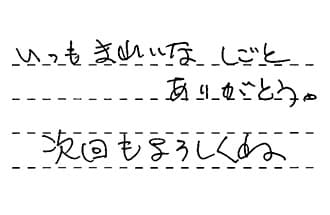 いつもきれいな しごと
ありがとう。
次回もよろしくね